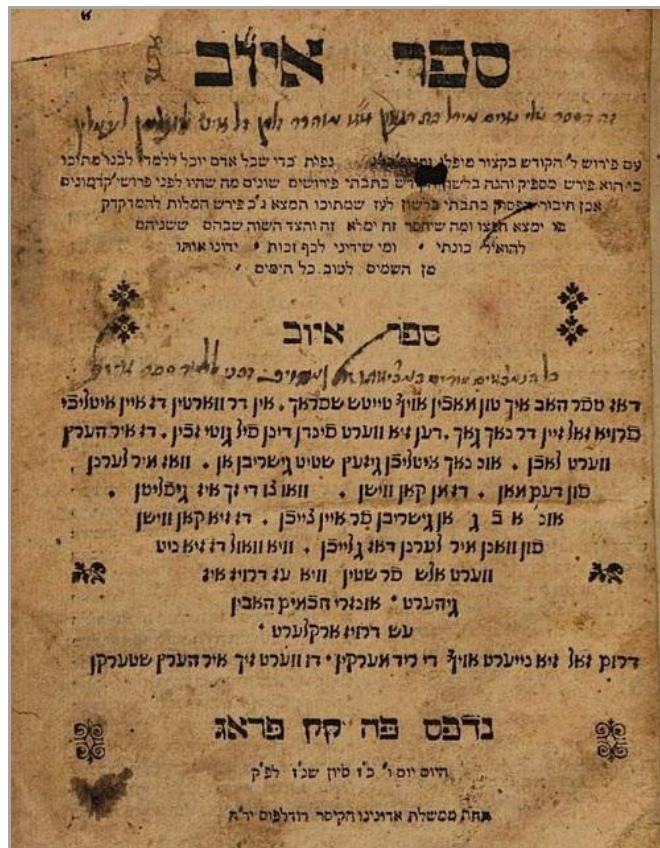 א
ספר איוב
עם פירוש ל' הקודש בקצור מופלג נפות כדי שכל אדם יוכל ללמדו לבנו מתוכו
כי הוא פירש מספיק והנה בלשון הקודש כתבתי פירושים שונים מה שהיו לפני פרושי' קדמונים
אכן חיבור הפסוק כתבתי בלשון לעז שמתוכו תמצא ג"כ פירש המלות להמדקדק
בו ימצא חפצו ומה שיחסר זה ימלא זה והצד השוה שבהם ששניהם
להואיל כונתי ׳ ומי שידיני לכף זכות ׳ ידונו אותו
מן השמים לטוב כל הימים ׳
ספר איוב
דאז ספר האב איך טון מאכין אויף טייטש שפראך . אין דר ווארטין דז איין איטליכי
פרויא זאל זיין דר נאך גאך . דען זיא ווערט פינדן דינן פיל גוטי זכין . דז איר הערץ
ווערט לאכן . אונ נאך איטליכן גיזעץ שטיט גישריבן אן . וואז מיר לערנן
פון דעם מאן . דז מן קאן ווישן . וואו צו די זך איז גיפליסן .
אונ' א ב ג אן גישריבן פר איין צייכן . דז זיא קאן ווישן
פון וואנן מיר לערנן דאז גלייכן . וויא וואול דז זיא ניט
ווערט אלש פר שטין וויא עז דרויז איז
גיהערט ׳ אונזרי חכמים האבין
עש דרויז ארקלערט ׳
דרום זאל זיא נייערט אויף די ריד מערקין ׳ דו ווערט זיך איר הערץ שטערקן
נדפס פה קק פראג
היום יום ו' כ"ז סיון שנ"ז לפ"ק
תחת ממשלת אדונינו הקיסר רודלפוס יר"ה